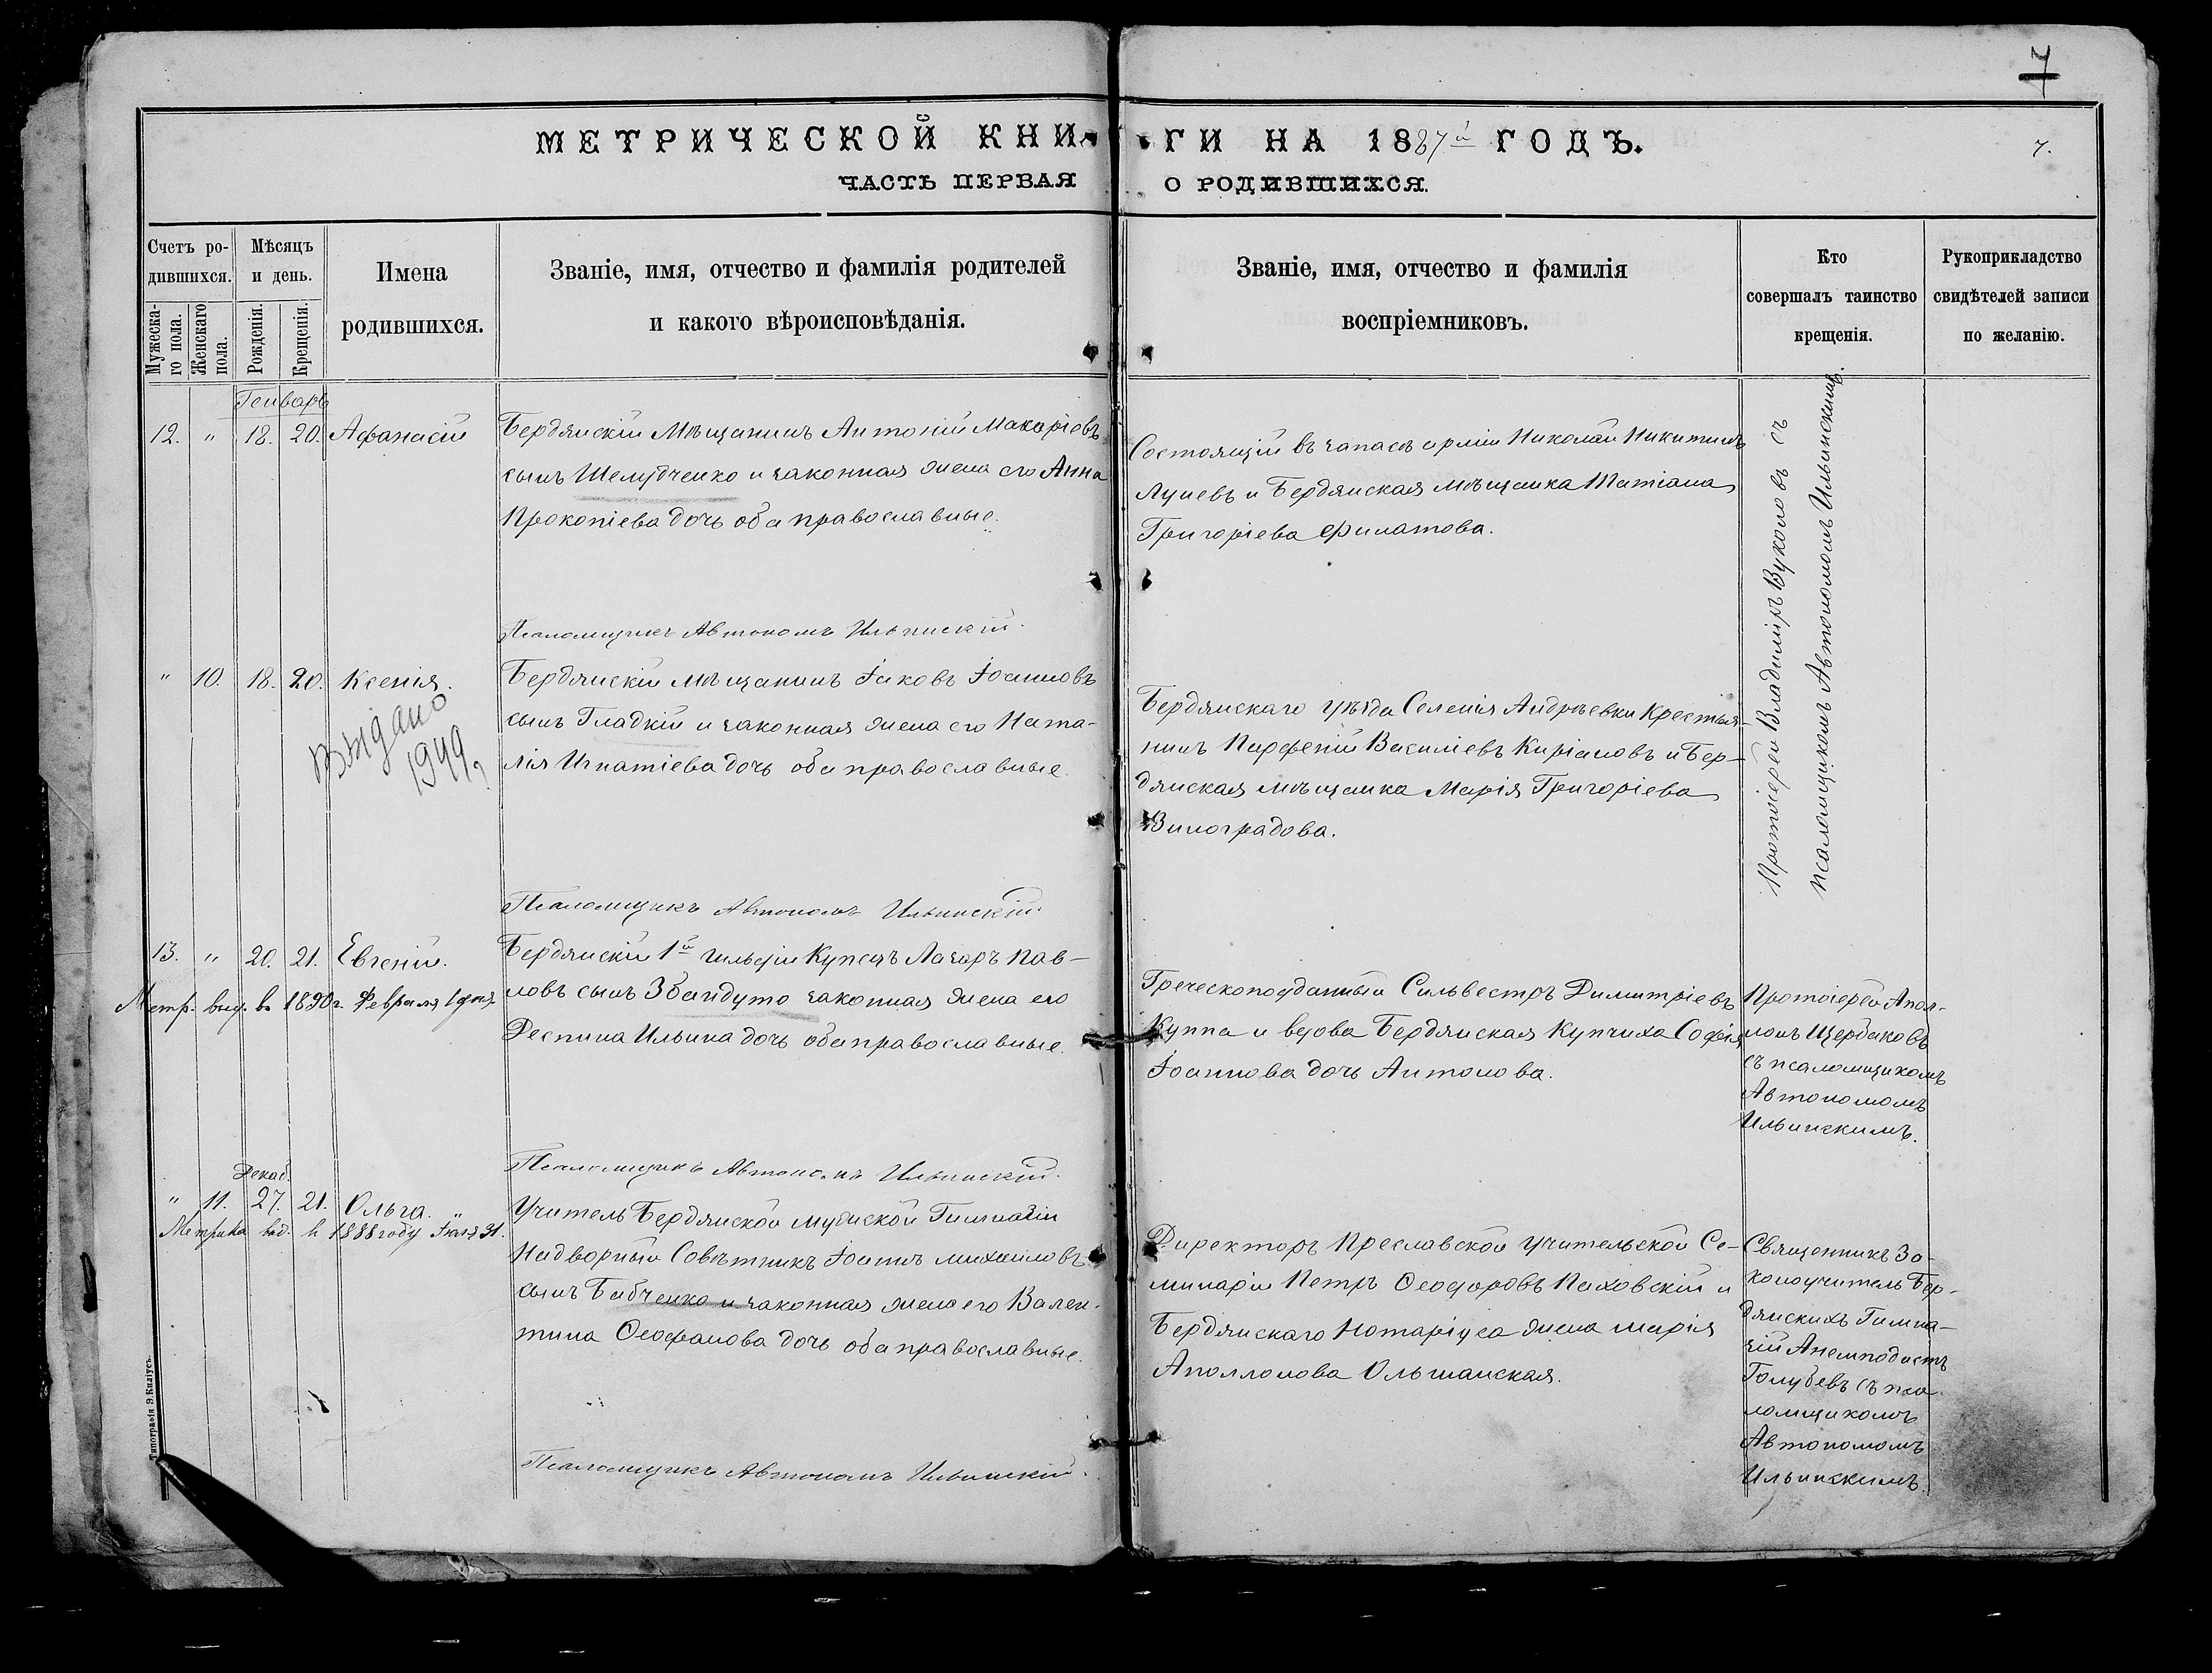 7
МЕТРИЧЕСКОЙ КНИ- ГИ НА 1887й ГОДЪ.
7.
ЧАСТЬ ПЕРВАЯ О РОДИВШИХСЯ.
Счетъ ро-
дившихся.
Мужеска-
го пола.
Женскаго
пола.
Мѣсяцъ
и день.
Рожденія.
Крещенія.
Имена
родившихся.
Званіе, имя, отчество и фамилія родителей
и какого вѣроисповѣданія.
Званіе, имя, отчество и фамилія
воспріемниковъ.
Кто
совершалъ таинство
крещенія.
Рукоприкладство
свидѣтелей записи
по желанію.
Генварь
12. " 18. 20. Афанасій
Бердянскій Мѣщанинъ Антоній Макаріевъ
сынъ Шелудченко и законная жена его Анна
Прокопіева дочь оба православные.
Состоящій въ запасѣ арміи Николай Никитинъ
Лунев и Бердянская мѣщанка Татіана
Григоріева Филатова.
Протоіерей Владиміръ Вуколовъ съ
псаломщикомъ Автономомъ Ильинскимъ.
Псаломщикъ Автономъ Ильинскій.
" 10. 18. 20. Ксенія.
Видано
1949
Бердянскій мѣщанинъ Іаковъ Іоанновъ
сынъ Гладкій и законная жена его Ната-
лія Игнатіева дочь оба православные.
Бердянскаго уѣзда Селенія Андреевки Крестья-
нинъ Парфеній Василіевъ Киріановъ и Бер-
дянская мѣщанка Марія Григоріева
Виноградова.
Псаломщикъ Автономъ Ильинскій.
13. " 20. 21. Евгеній.
Метр. выд. в 1890 г. Февраля 1 дня.
Бердянскій 1й гильдіи Купецъ Лазаръ Пав-
ловъ сынъ Збандуто законная жена его
Деспина Ильина дочь оба православные.
Греческоподданный Сильвестръ Димитріевъ
Куппа и вдова Бердянская Купчиха Софія
Іоаннова дочь Антонова.
Протоіерей Апол-
лонъ Щербаковъ
съ псаломщикомъ
Автономомъ
Ильинскимъ.
Псаломщикъ Автономъ Ильинскій.
Декаб.
" 11. 27. 21. Ольга. "
Метрика выд. в 1888 году 31.
Учитель Бердянской мужской Гимназіи
Надворный Совѣтникъ Іоаннъ михайловъ
сынъ Бабченко и законная жена его Вален-
тина Ѳеофанова дочь оба православные.
Директоръ Преславской учительской Се-
минаріи Петръ Ѳеодоровъ Паховскій и
Бердянскаго Нотаріуса жена марія
Аполлонова Ольшанская.
Священникъ За-
коноучитель Бер-
дянскихъ Гимна-
зій Анемподистъ
Голубевъ съ пса-
ломщикомъ
Автономомъ
Ильинскимъ.
Псаломщикъ Автономъ Ильинскій.
Типографія Э. Килiусъ.